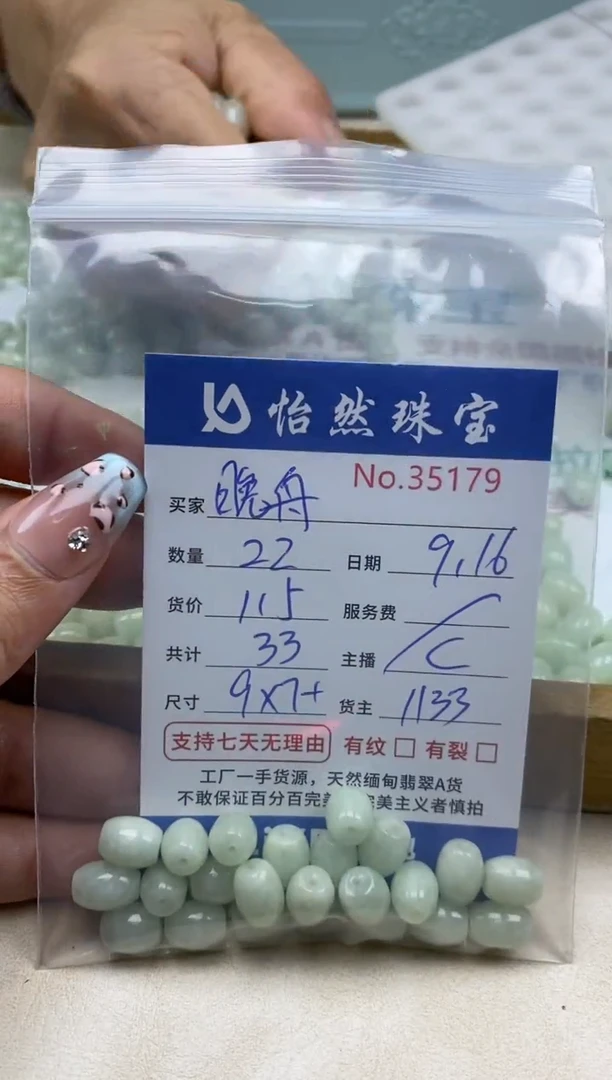 怡然珠宝
No.35179
买家 晚舟
数量 22 日期 9.16
货价 1.5 服务费 /
共计 33 主播 C
尺寸 9×7+ 货主 1133
支持七天无理由 有纹 □ 有裂 □
工厂一手货源，天然缅甸翡翠A货
不敢保证百分百完美 完美主义者慎拍